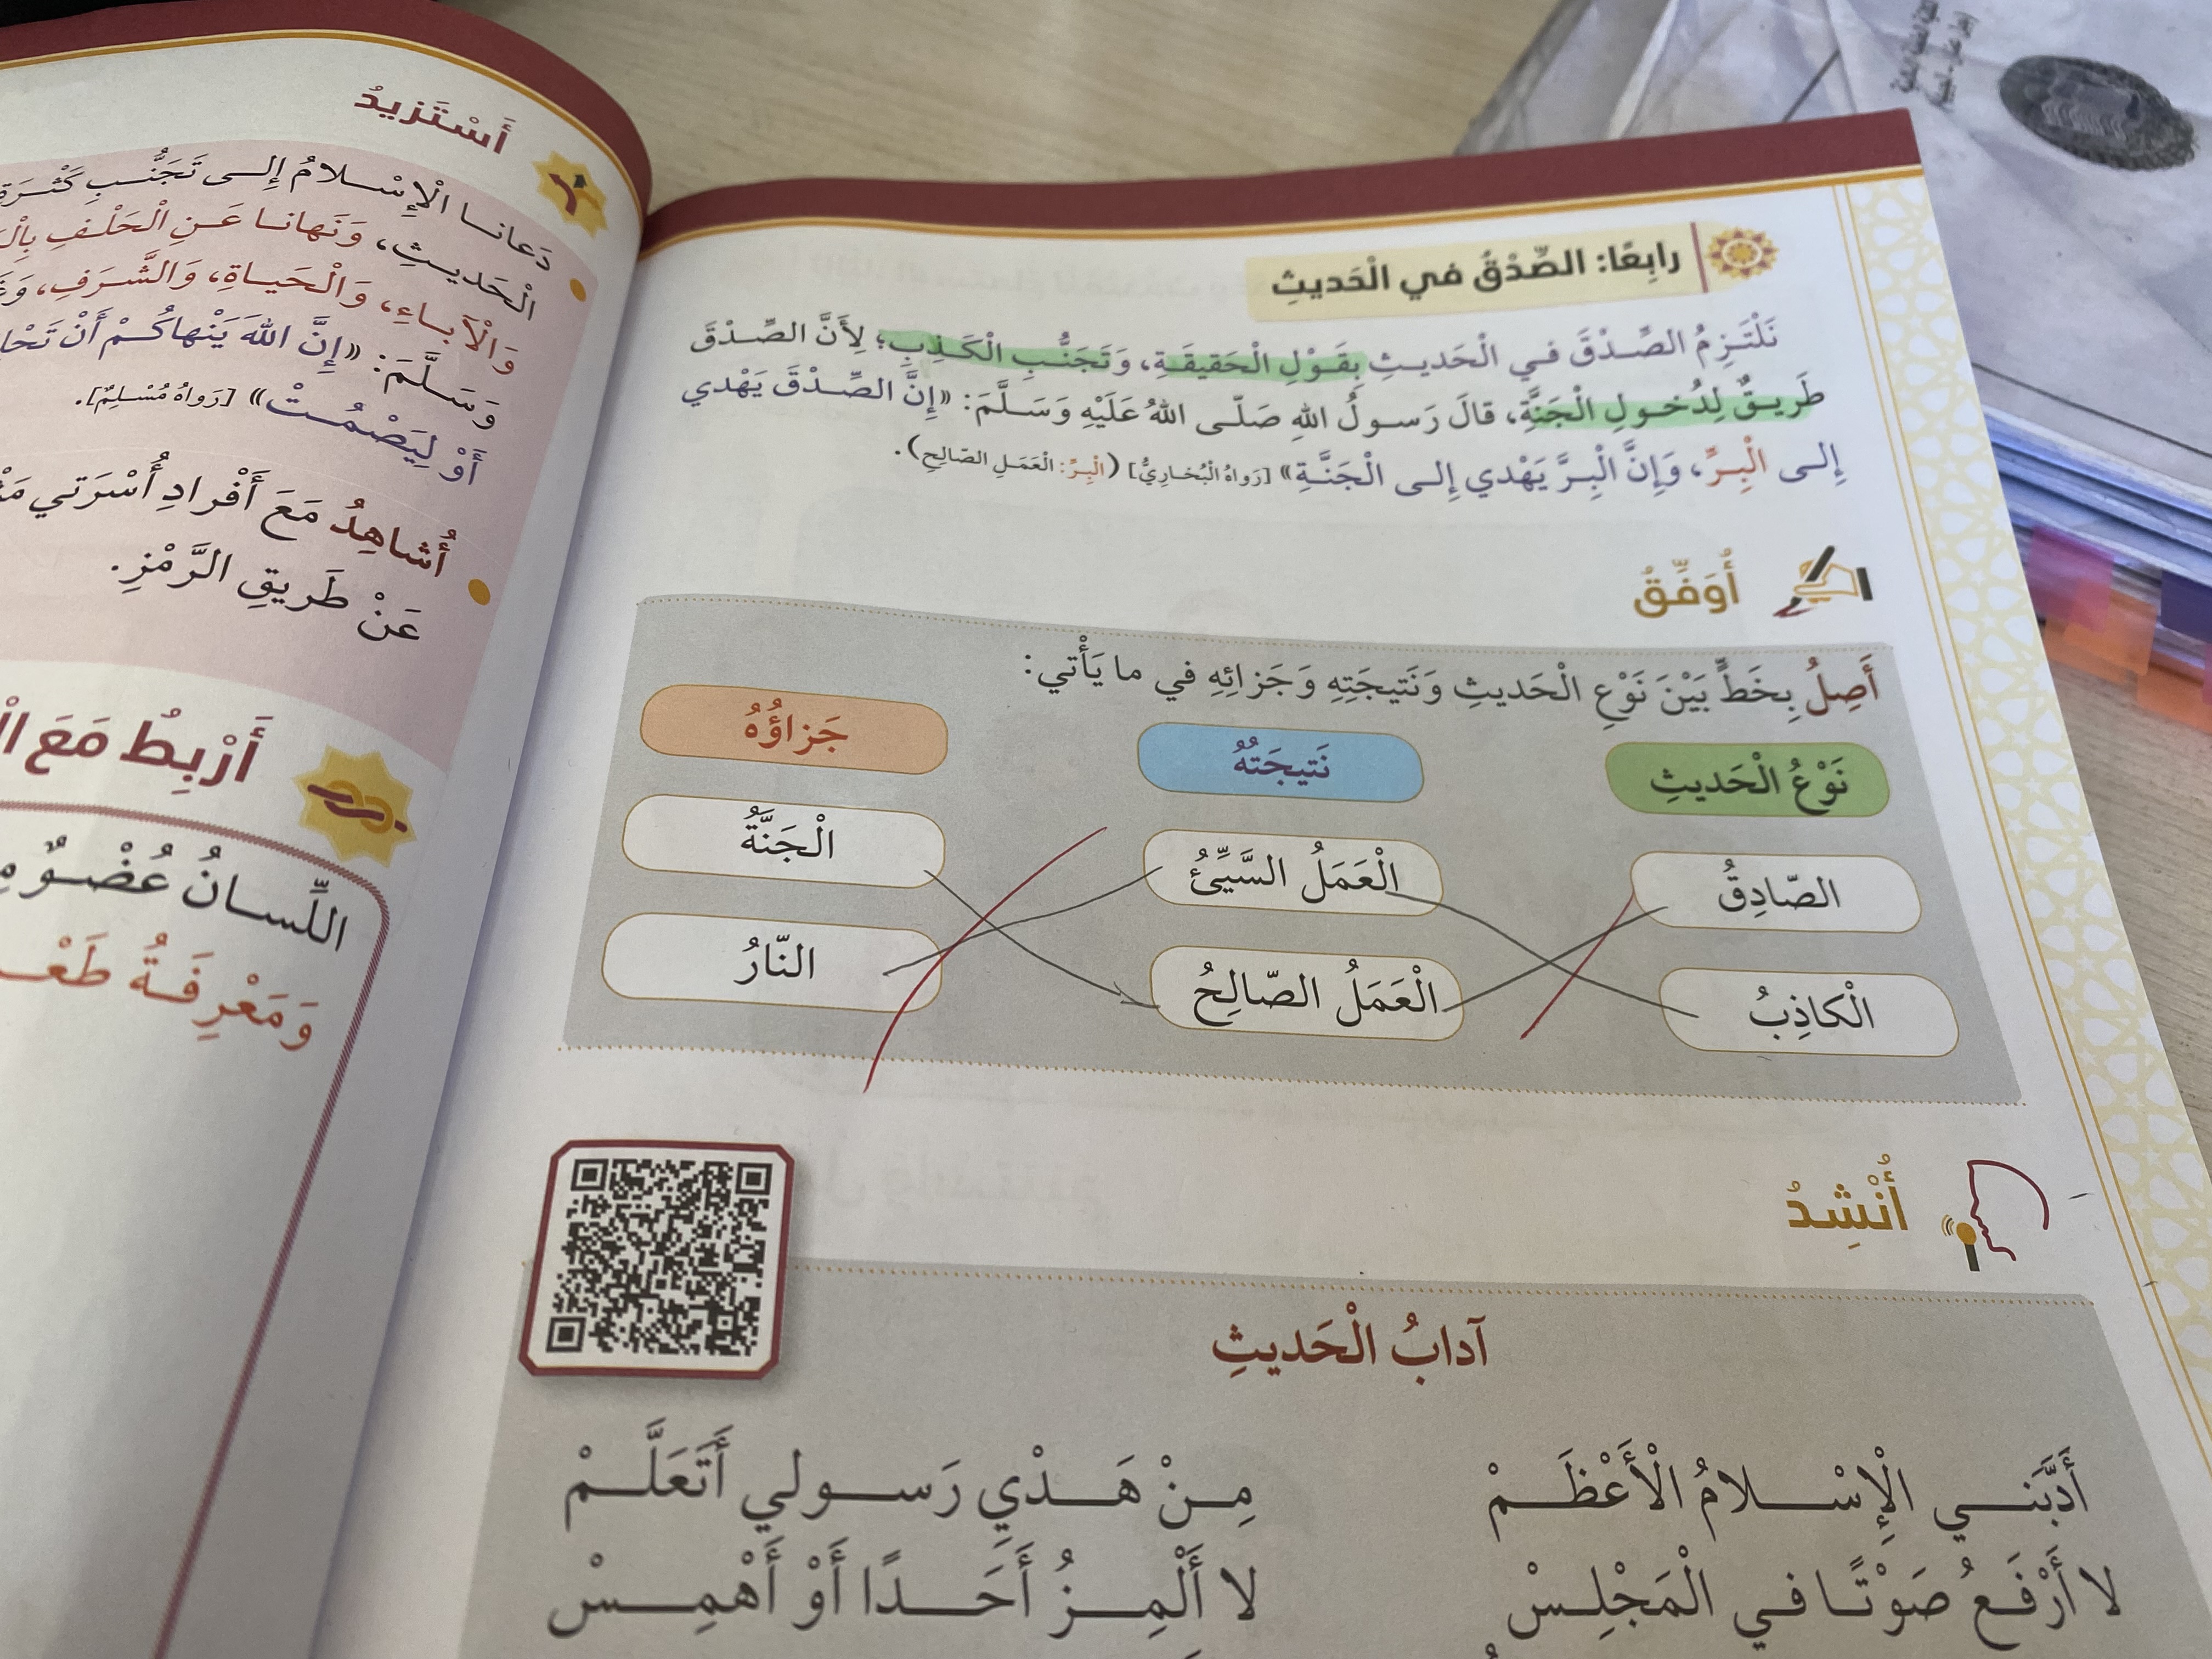 رابِعًا: الصِّدْقُ في الْحَديثِ
نَلْتَزِمُ الصِّدْقَ في الْحَديثِ بِقَوْلِ الْحَقيقَةِ، وَتَجَنُّبِ الْكَذِبِ؛ لِأَنَّ الصِّدْقَ
طَريقٌ لِدُخولِ الْجَنَّةِ، قالَ رَسولُ اللهِ صَلّى اللهُ عَلَيْهِ وَسَلَّمَ: «إِنَّ الصِّدْقَ يَهْدي
إِلى الْبِرِّ، وَإِنَّ الْبِرَّ يَهْدي إِلى الْجَنَّةِ» [رَواهُ الْبُخارِيُّ] (الْبِرِّ: الْعَمَلِ الصّالِحِ).
أُوَفِّقُ
أَصِلُ بِخَطٍّ بَيْنَ نَوْعِ الْحَديثِ وَنَتيجَتِهِ وَجَزائِهِ في ما يَأْتي:
نَوْعُ الْحَديثِ نَتيجَتُهُ جَزاؤُهُ
الصّادِقُ الْعَمَلُ السَّيِّئُ الْجَنَّةُ
الْكاذِبُ الْعَمَلُ الصّالِحُ النّارُ
أُنْشِدُ
آدابُ الْحَديثِ
أَدَّبَني الْإِسْلامُ الْأَعْظَمْ مِنْ هَدْيِ رَسولي أَتَعَلَّمْ
لا أَرْفَعُ صَوْتًا في الْمَجْلِسْ لا أَلْمِزُ أَحَدًا أَوْ أَهْمِسْ
أَسْتَزيدُ
دَعانا الْإِسْلامُ إِلى تَجَنُّبِ كَثْرَةِ
الْحَديثِ، وَنَهانا عَنِ الْحَلْفِ
وَالْآباءِ، وَالْحَياةِ، وَالشَّرَفِ،
وَسَلَّمَ: «إِنَّ اللهَ يَنْهاكُمْ أَنْ
أَوْ لِيَصْمُتْ» [رَواهُ مُسْلِمٌ].
أُشاهِدُ مَعَ أَفْرادِ أُسْرَتي
عَنْ طَريقِ الرَّمْزِ.
أَرْبِطُ مَعَ
اللِّسانُ عُضْوٌ
وَمَعْرِفَةُ